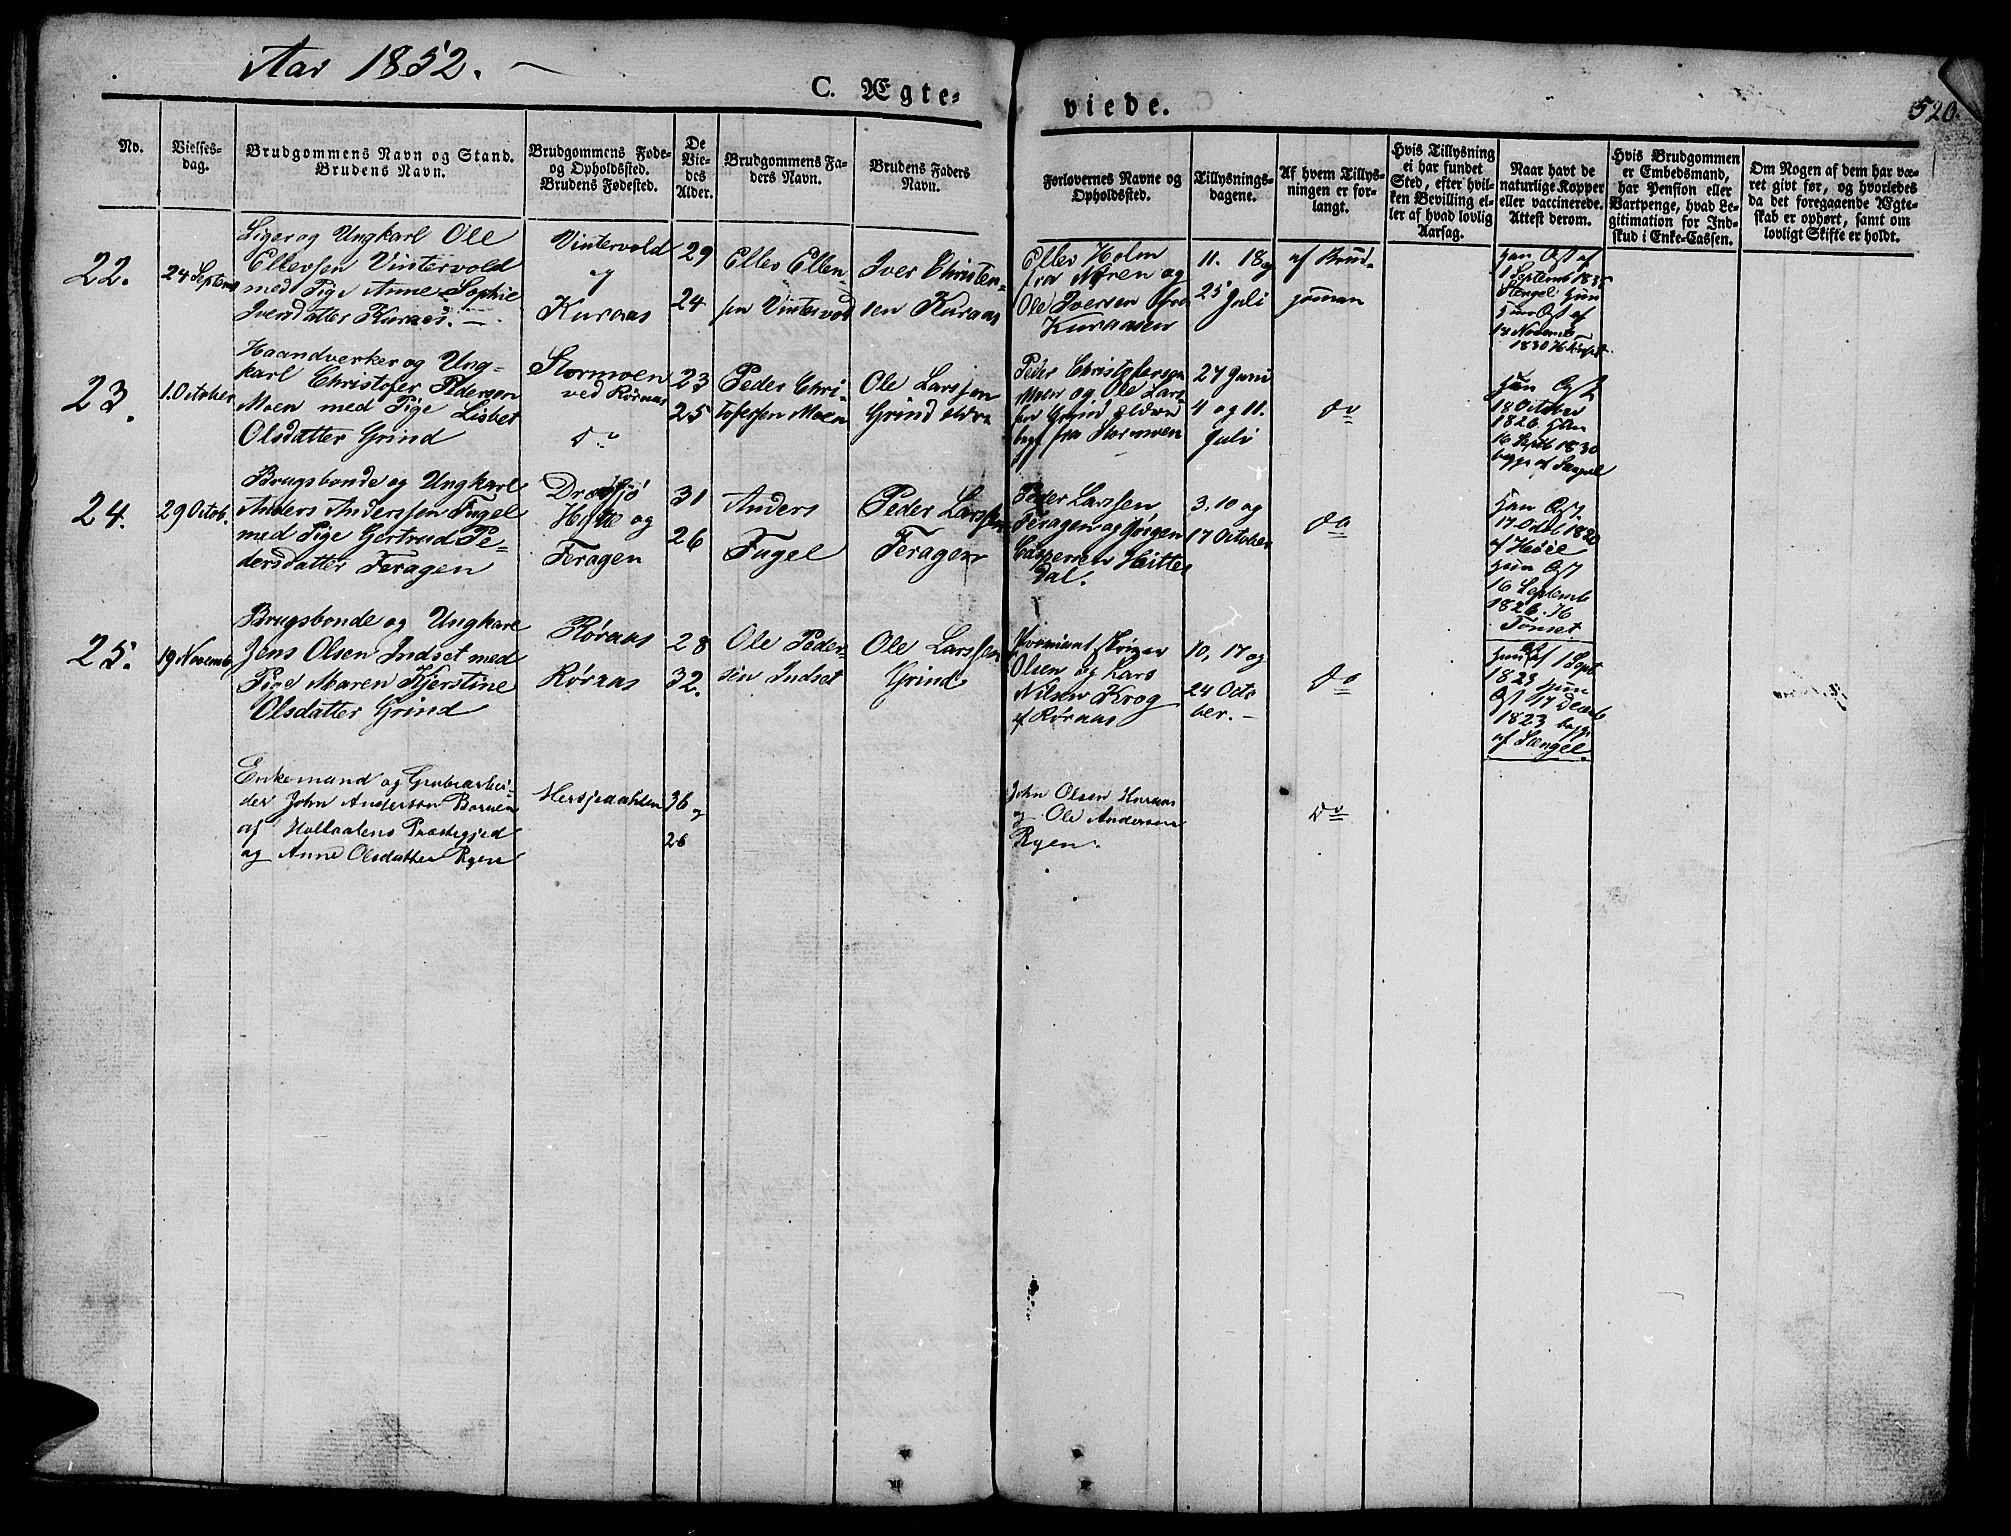 Aar 1852.
C. Ægte-
viede.
520.
No.
Vielses-
dag.
Brudgommens Navn og Stand.
Brudens Navn.
Brudgommens Føde-
og Opholdssted.
Brudens Fødested.
De
Vie-
des
Alder.
Brudgommens Fa-
ders Navn.
Brudens Faders
Navn.
Forlovernes Navne og
Opholdssted.
Tillysnings-
dagene.
Af hvem Tillys-
ningen er for-
langt.
Hvis Tillysning
ei har fundet
Sted, efter hvil-
ken Bevilling el-
ler af hvad lovlig
Aarsag.
Naar havt de
naturlige Kopper
eller vaccinerede.
Attest derom.
Hvis Brudgommen
er Embedsmand,
har Pension eller
Vartpenge, hvad Le-
gitimation for Ind-
skud i Enke-Cassen.
Om Nogen af dem har væ-
ret givt før, og hvorledes
da det foregaaende Ægte-
skab er ophørt, samt om
lovligt Skifte er holdt.
22.
24 Septemb
og Ungkarl Ole
Ellevsen Vintervold
med Pige Anne Sophie
Iversdatter Kuraas. —
Vintervold
og
Kuraas
29
24
Ellev Ellev-
sen Vintervold
Iver Christen-
sen Kuraas
Ellev Holm
fra Møren og
Ole Iversen fra
Kuraasen
11. 18 og
25 Juli
af Brud-
gommen
Han Att af
1 Septemb 1835
Stengel Hun
Att af
18 Novemb
1830
23.
1 October
Haandverker og Ung-
karl Christofer Pedersen
Moen med Pige Lisbet
Olsdatter Grind
Stormoen
ved Røraas
do
23
25
Peder Chri-
stofersen Moen
Ole Larsen
Grind ældre
Peder Christophersen
Moen og Ole Lars-
sen Grind ældre
begge fra Stormoen
27 Juni
4 og 11.
Juli
do
18 October
1826 Han
16 Septb 1830
begge af Stengel
24.
29 Octob.
Brugsbonde og Ungkarl
Anders Anderssen Fugel
med Pige Gertrud Pe-
dersdatter Feragen
og
Feragen
31
26
Anders
Fugel
Peder Larssen
Feragen
Peder Larssen
Feragen og Jørgen
Caspersen Hitter
dal.
3, 10 og
17 October
do
Han Att.
1820
af
Hun Att
16 Septemb
1826. H
Tønset
25.
19 Novemb
Brugsbonde og Ungkarl
Jens Olsen Indset med
Pige Maren Kjerstine
Olsdatter Grind
Røraas
Røraas
28
32.
Ole Peder-
sen Indset
Ole Larssen
Grind
Olsen og Lars
Nilsen Krog
af Røraas
10, 17 og
24 Octo
ber. —
do
af 1 Sept
1823 Hun
Att 17 Decemb
1823 begge
af Stengel.
Enkemand og Grubearbei-
der John Anderson
af Holtaalens Præstegjed
og Anne Olsdatter Ryen
Herjedahlen
36 og
26
John Olsen
og Ole Andersen
Ryen.
do